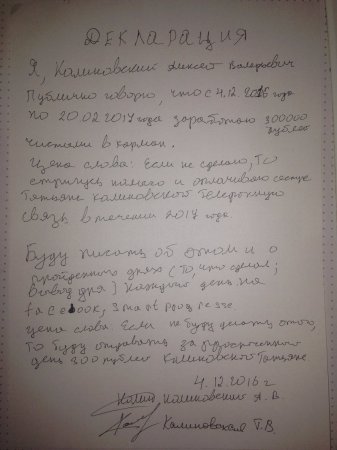 ДЕКЛАРАЦИЯ
Я, Калиновский Алексей Валерьевич
Публично говорю, что с 4.12.2016 года
по 20.02.2017 года заработаю 300000 рублей
чистыми в карман.
Цена слова: Если не сделаю, то
стригусь налысо и оплачиваю сестре
Татьяне Калиновской телефонную
связь в течении 2017 года.
Буду писать об этом и о
пройденных днях (то, что сделал;
вывод дня) каждого день на
facebook,
цена слова: Если не буду делать этого,
то буду отправлять за просроченного
день 300 рублей Калиновской Татьяне
4.12.2016 г
Калиновский А.В.
Калиновская Т.В.